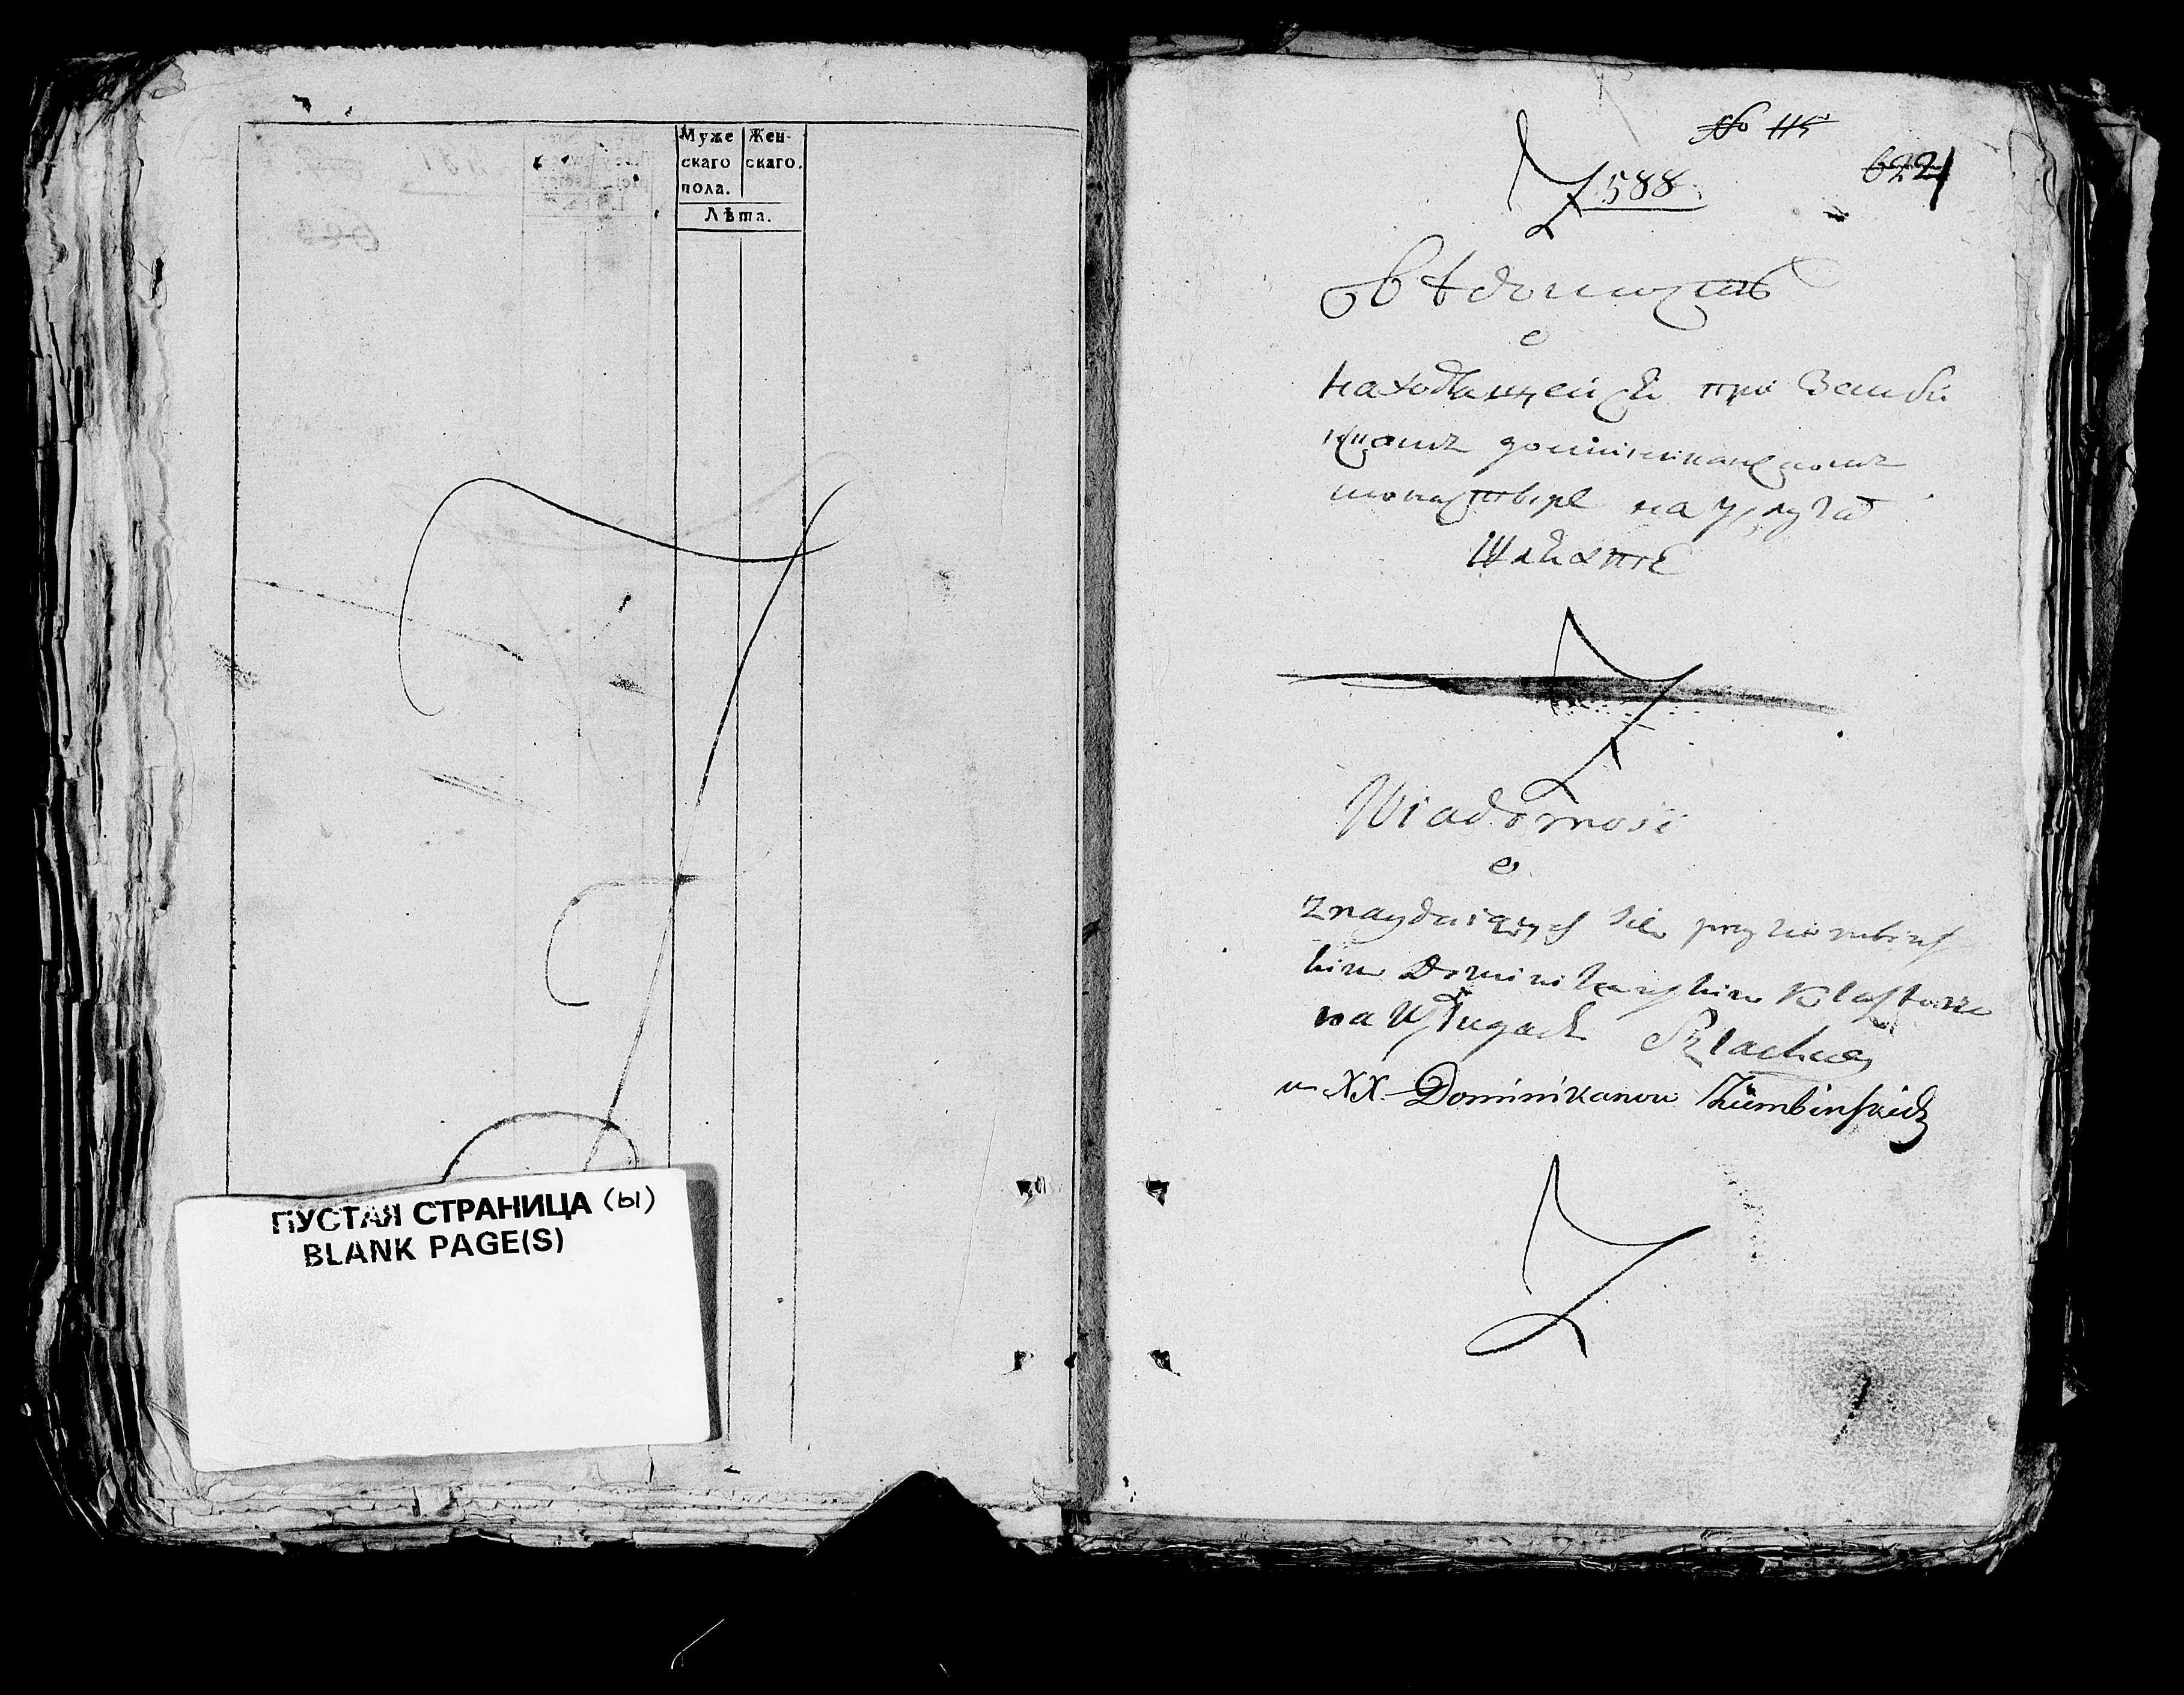 Муже
скаго
пола.
Жен-
скаго.
Лѣта.
ПУСТАЯ СТРАНИЦА (ы)
BLANK PAGE(S)
№ 115
588
622
Вѣдомость
о
находящейся при Зембин
скомъ доминиканскомъ
монастыре на услугах
Шляхте
Wiadomość
o
Znayduiących się przy ziembins
kim Dominikanskim Klasztorze
na Usługach Szlachcie
u XX. Dominikanow Ziembinskich